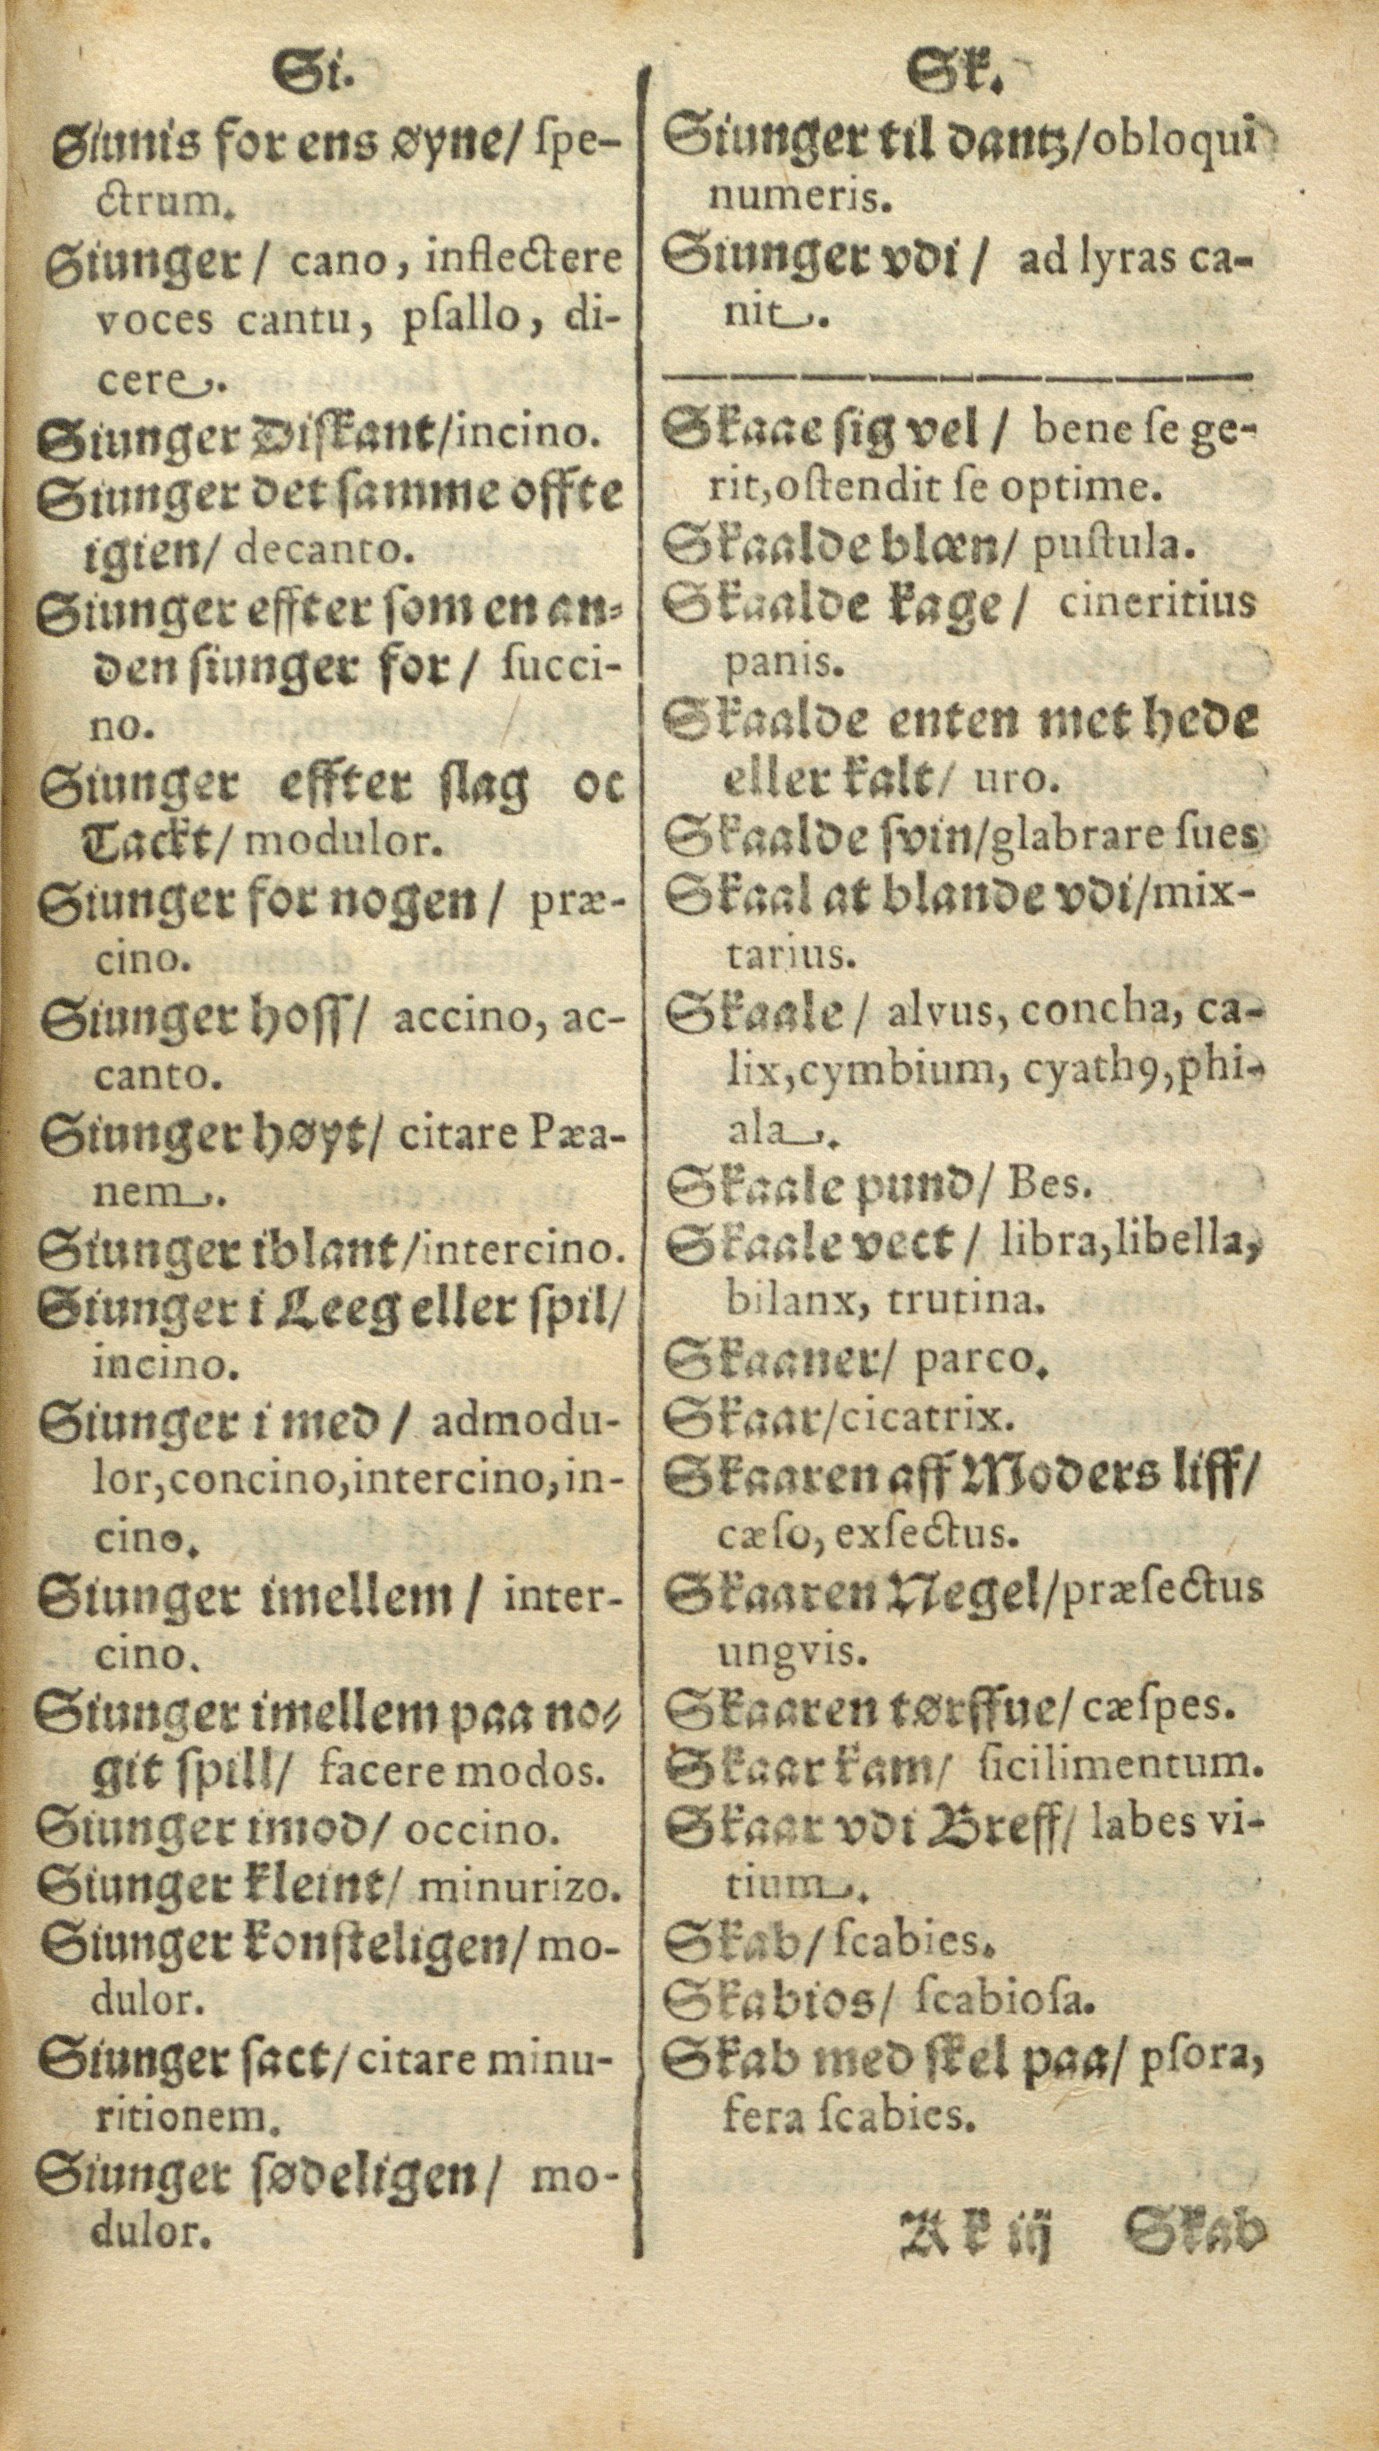 Si.
Siunis for ens øyne/ ſpe-
ctrum.
Siunger/ cano, inflectere
voces cantu, pſallo, di-
cere.
Siunger Diſkant/incino.
Siunger det ſamme offte
igien/ decanto.
Siunger effter ſom en an-
den ſiunger for/ ſucci-
no.
Siunger effter ſlag oc
Tackt/ modulor.
Siunger for nogen/ præ-
cino.
Siunger hoſſ/ accino, ac-
canto.
Siunger høyt/ citare Pæa-
nem.
Siunger iblant/intercino.
Siunger i Leeg eller ſpil/
incino.
Siunger i med/ admodu-
lor,concino,intercino,in-
cino.
Siunger imellem/ inter-
cino.
Siunger imellem paa no-
git ſpill/ facere modos.
Siunger imod/ occino.
Siunger kleint/ minurizo.
Siunger konſteligen/ mo-
dulor.
Siunger ſact/citare minu-
ritionem.
Siunger ſødeligen/ mo-
dulor.
Sk.
Siunger til dantz/obloqui
numeris.
Siunger vdi/ ad lyras ca-
nit.
Skaae ſig vel/ bene ſe ge-
rit,oſtendit ſe optime.
Skaalde blæn/ puſtula.
Skaalde kage/ cineritius
panis.
Skaalde enten met hede
eller kalt/ uro.
Skaalde ſvin/glabrare ſues
Skaal at blande vdi/mix-
tarius.
Skaale/ alvus, concha, ca-
lix,cymbium, cyathꝯ,phi-
ala.
Skaale pund/ Bes.
Skaale vect/ libra,libella,
bilanx, trutina.
Skaaner/ parco.
Skaar/cicatrix.
Skaaren aff Moders liff/
cæſo, exſectus.
Skaaren Negel/præſectus
ungvis.
Skaaren tørffue/ cæſpes.
Skaar kam/ ſicilimentum.
Skaar vdi Breff/ labes vi-
tium.
Skab/ ſcabies.
Skabios/ ſcabioſa.
Skab med ſkel paa/ pſora,
fera ſcabies.
Kk iij Skab